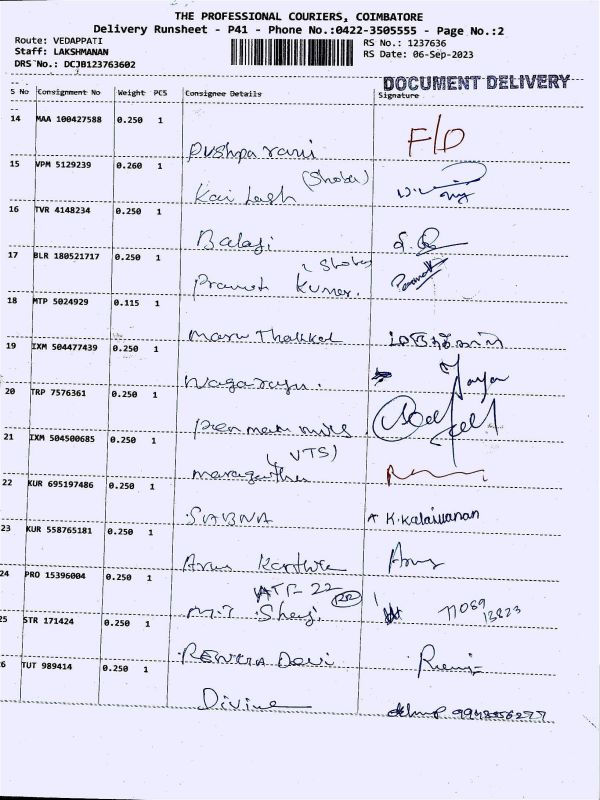 THE PROFESSIONAL COURIERS, COIMBATORE
Delivery Runsheet - P41 - Phone No.:0422-3505555 - Page No.:2
Route: VEDAPPATI
Staff: LAKSHMANAN
DRS No.: DCJB123763602
RS No.: 1237636
RS Date: 06-Sep-2023
DOCUMENT DELIVERY
S No Consignment No Weight PCS Consignee Details Signature
14 MAA 100427588 0.250 1
Pushpa rani F/D
15 VPM 5129239 0.260 1
Kailash (Shoba)
16 TVR 4148234 0.250 1
Balaji
17 BLR 180521717 0.250 1
Pramoth Kumar. (Shoba)
18 MTP 5024929 0.115 1
Maru Thakkal
19 IXM 504477439 0.250 1
Nagaraju. Jaya
20 TRP 7576361 0.250 1
Pen man mills
21 IXM 504500685 0.250 1
(VTS)
22 KUR 695197486 0.250 1
SABNA K.Kalaivanan
23 KUR 558765181 0.250 1
Arun Karthik Arun
24 PRO 15396004 0.250 1
ATF-22
M.J Sheji. 77089 13823
25 STR 171424 0.250 1
RENUKA Devi
26 TUT 989414 0.250 1
Divine